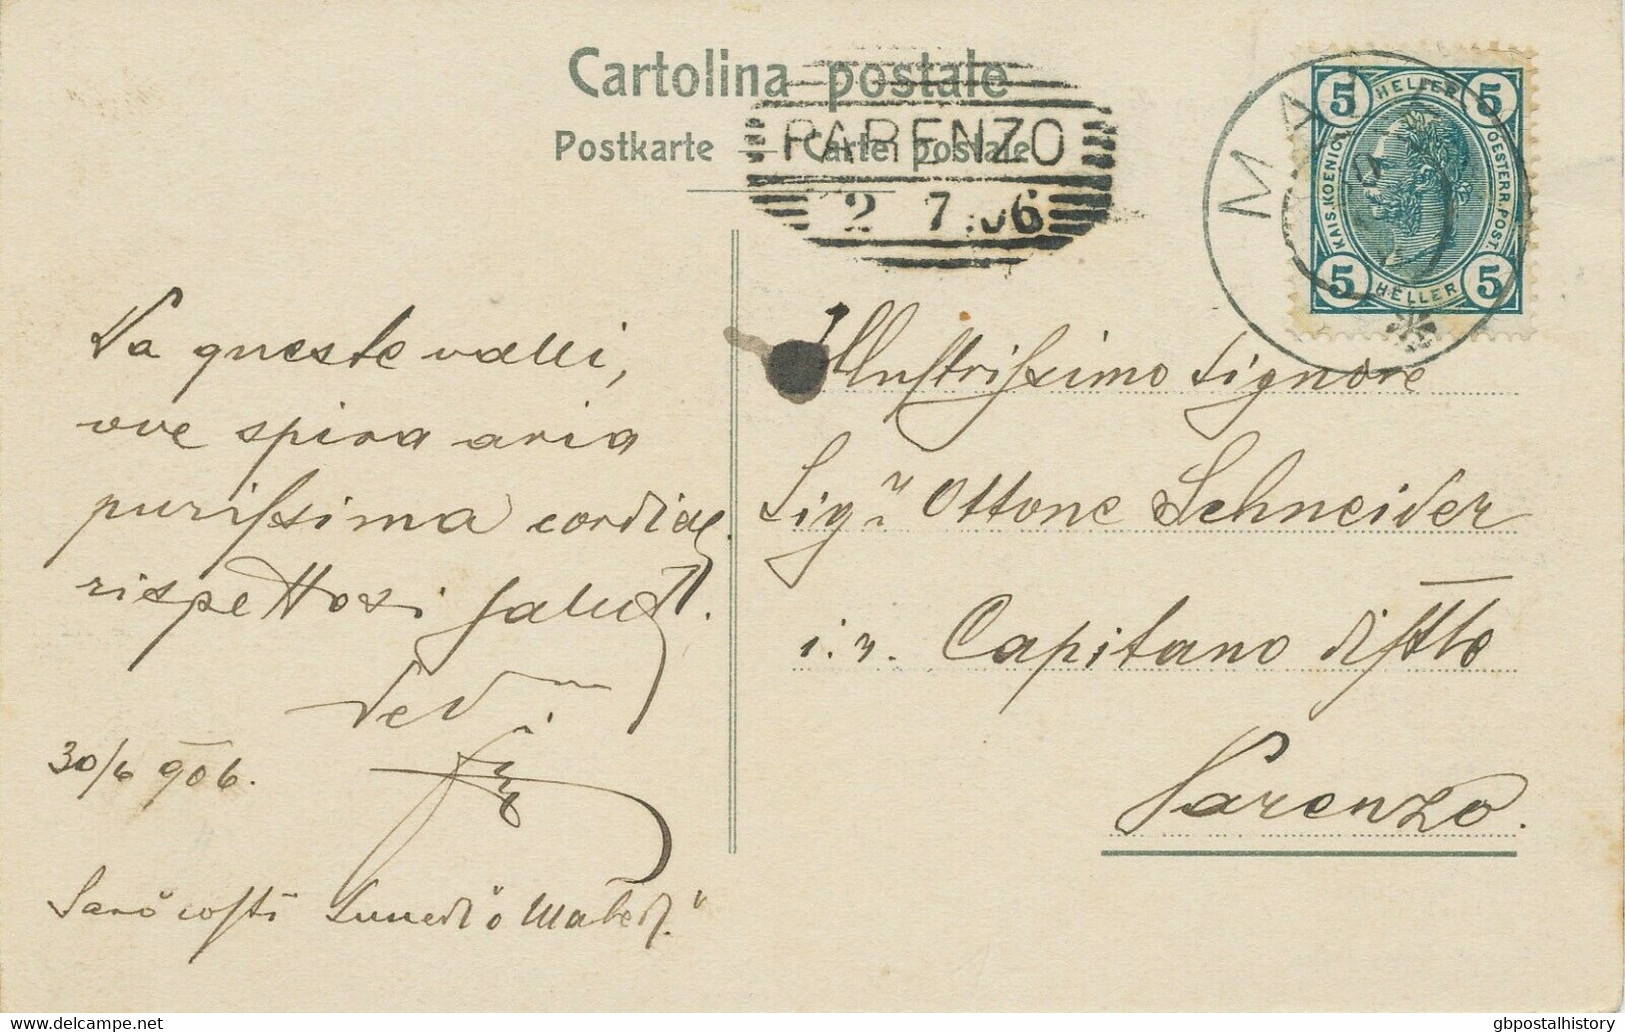 Cartolina postale
Postkarte — Carte postale
PARENZO
2 7 06
5 HELLER 5
KAIS. KOENIGL. OESTERR. POST.
5 HELLER 5
Da queste valli,
ove spira aria
purissima cordial.
rispettosi saluti.
30/6 906.
Sarò costì Lunedì o Martedì
Illustrissimo Signore
Sigr Ottone Schneider
i. r. Capitano disttle
Parenzo.
gbpostalhistory